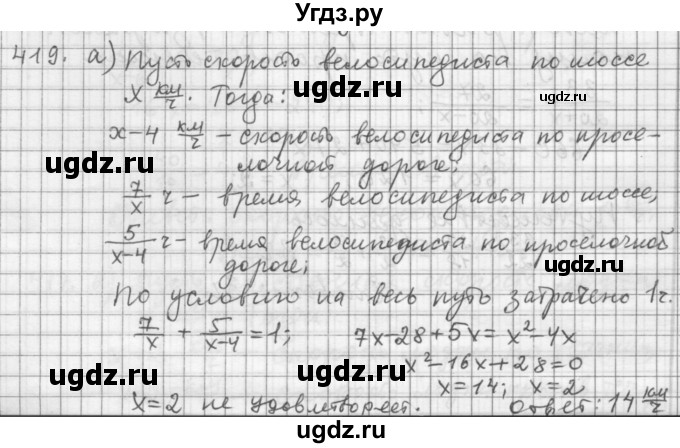 Угдз.ру
419. а) Пусть скорость велосипедиста по шоссе
x км/ч. Тогда:
угдз.ru
угдз.ru
x-4 км/ч – скорость велосипедиста по просе-
лочной дороге;
угдз.ru
угдз.ru
7/x ч – время велосипедиста по шоссе,
5/(x-4) ч – время велосипедиста по проселочной
дороге;
угдз.ru
угдз.ru
По условию на весь путь затрачено 1ч.
7/x + 5/(x-4) = 1; 7x-28+5x=x²-4x
x²-16x+28=0
угдз.ru
угдз.ru
x=14; x=2
x=2 не удовлетворяет. Ответ: 14 км/ч
угдз.ru